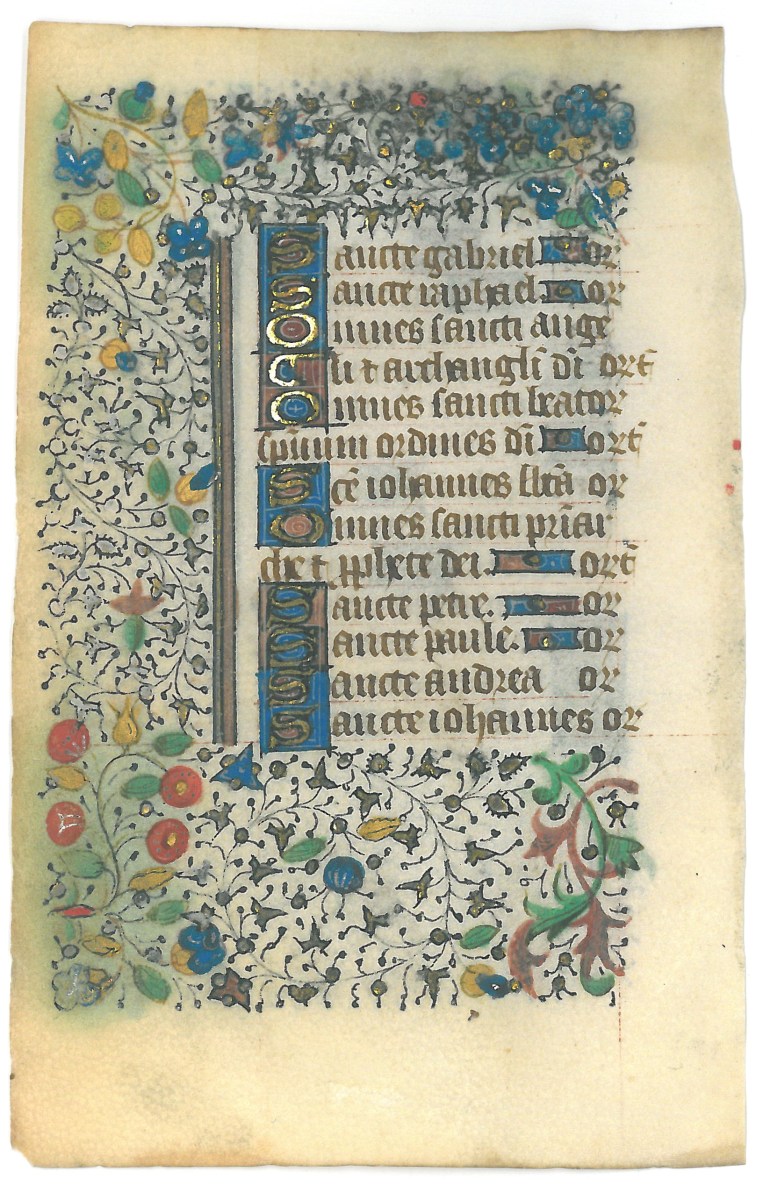 Sancte gabriel or
Sancte raphael or
Omnes sancti ange
li ⁊ archangl̄i dī ort̄
Omnes sancti beator
sp̄uum ordines dī ort̄
Sc̄e iohannes bt̄a or
Omnes sancti pr̄iar
che ⁊ ꝓphete dei. ort̄
Sancte petre. or
Sancte paule. or
Sancte andrea or
Sancte iohannes or